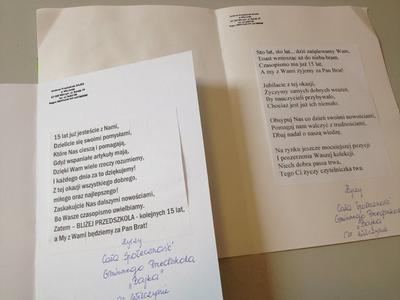 15 lat już jesteście z Nami,
Dzielicie się swoimi pomysłami,
Które Nas cieszą i pomagają,
Gdyż wspaniałe artykuły mają,
Dzięki Wam wiele rzeczy rozumiemy,
I każdego dnia za to dziękujemy!
Z tej okazji wszystkiego dobrego,
miłego oraz najlepszego!
Zaskakujcie Nas dalszymi nowościami,
Bo Wasze czasopismo uwielbiamy.
Zatem – BLIŻEJ PRZEDSZKOLA - kolejnych 15 lat,
a My z Wami będziemy za Pan Brat!
Życzy
Cała Społeczność
Gminnego Przedszkola
"Bajka"
Sto lat, sto lat... dziś zaśpiewamy Wam,
Toast wznosząc aż do nieba bram.
Czasopismo ma już 15 lat,
A my z Wami żyjemy za Pan Brat!
Jubilacie z tej okazji,
Życzymy samych dobrych wrażeń,
By nauczycieli przybywało,
Chociaż jest już ich niemało.
Obsypuj Nas co dzień swoimi nowościami,
Pomagaj nam walczyć z trudnościami,
Dbaj nadal o naszą wiedzę.
Na rynku jeszcze mocniejszej pozycji
I poszerzenia Waszej kolekcji.
Niech dobra passa trwa,
Tego Ci życzy czytelniczka twa.
Życzy
Cała Społeczność
Gminnego Przedszkola
"Bajka"